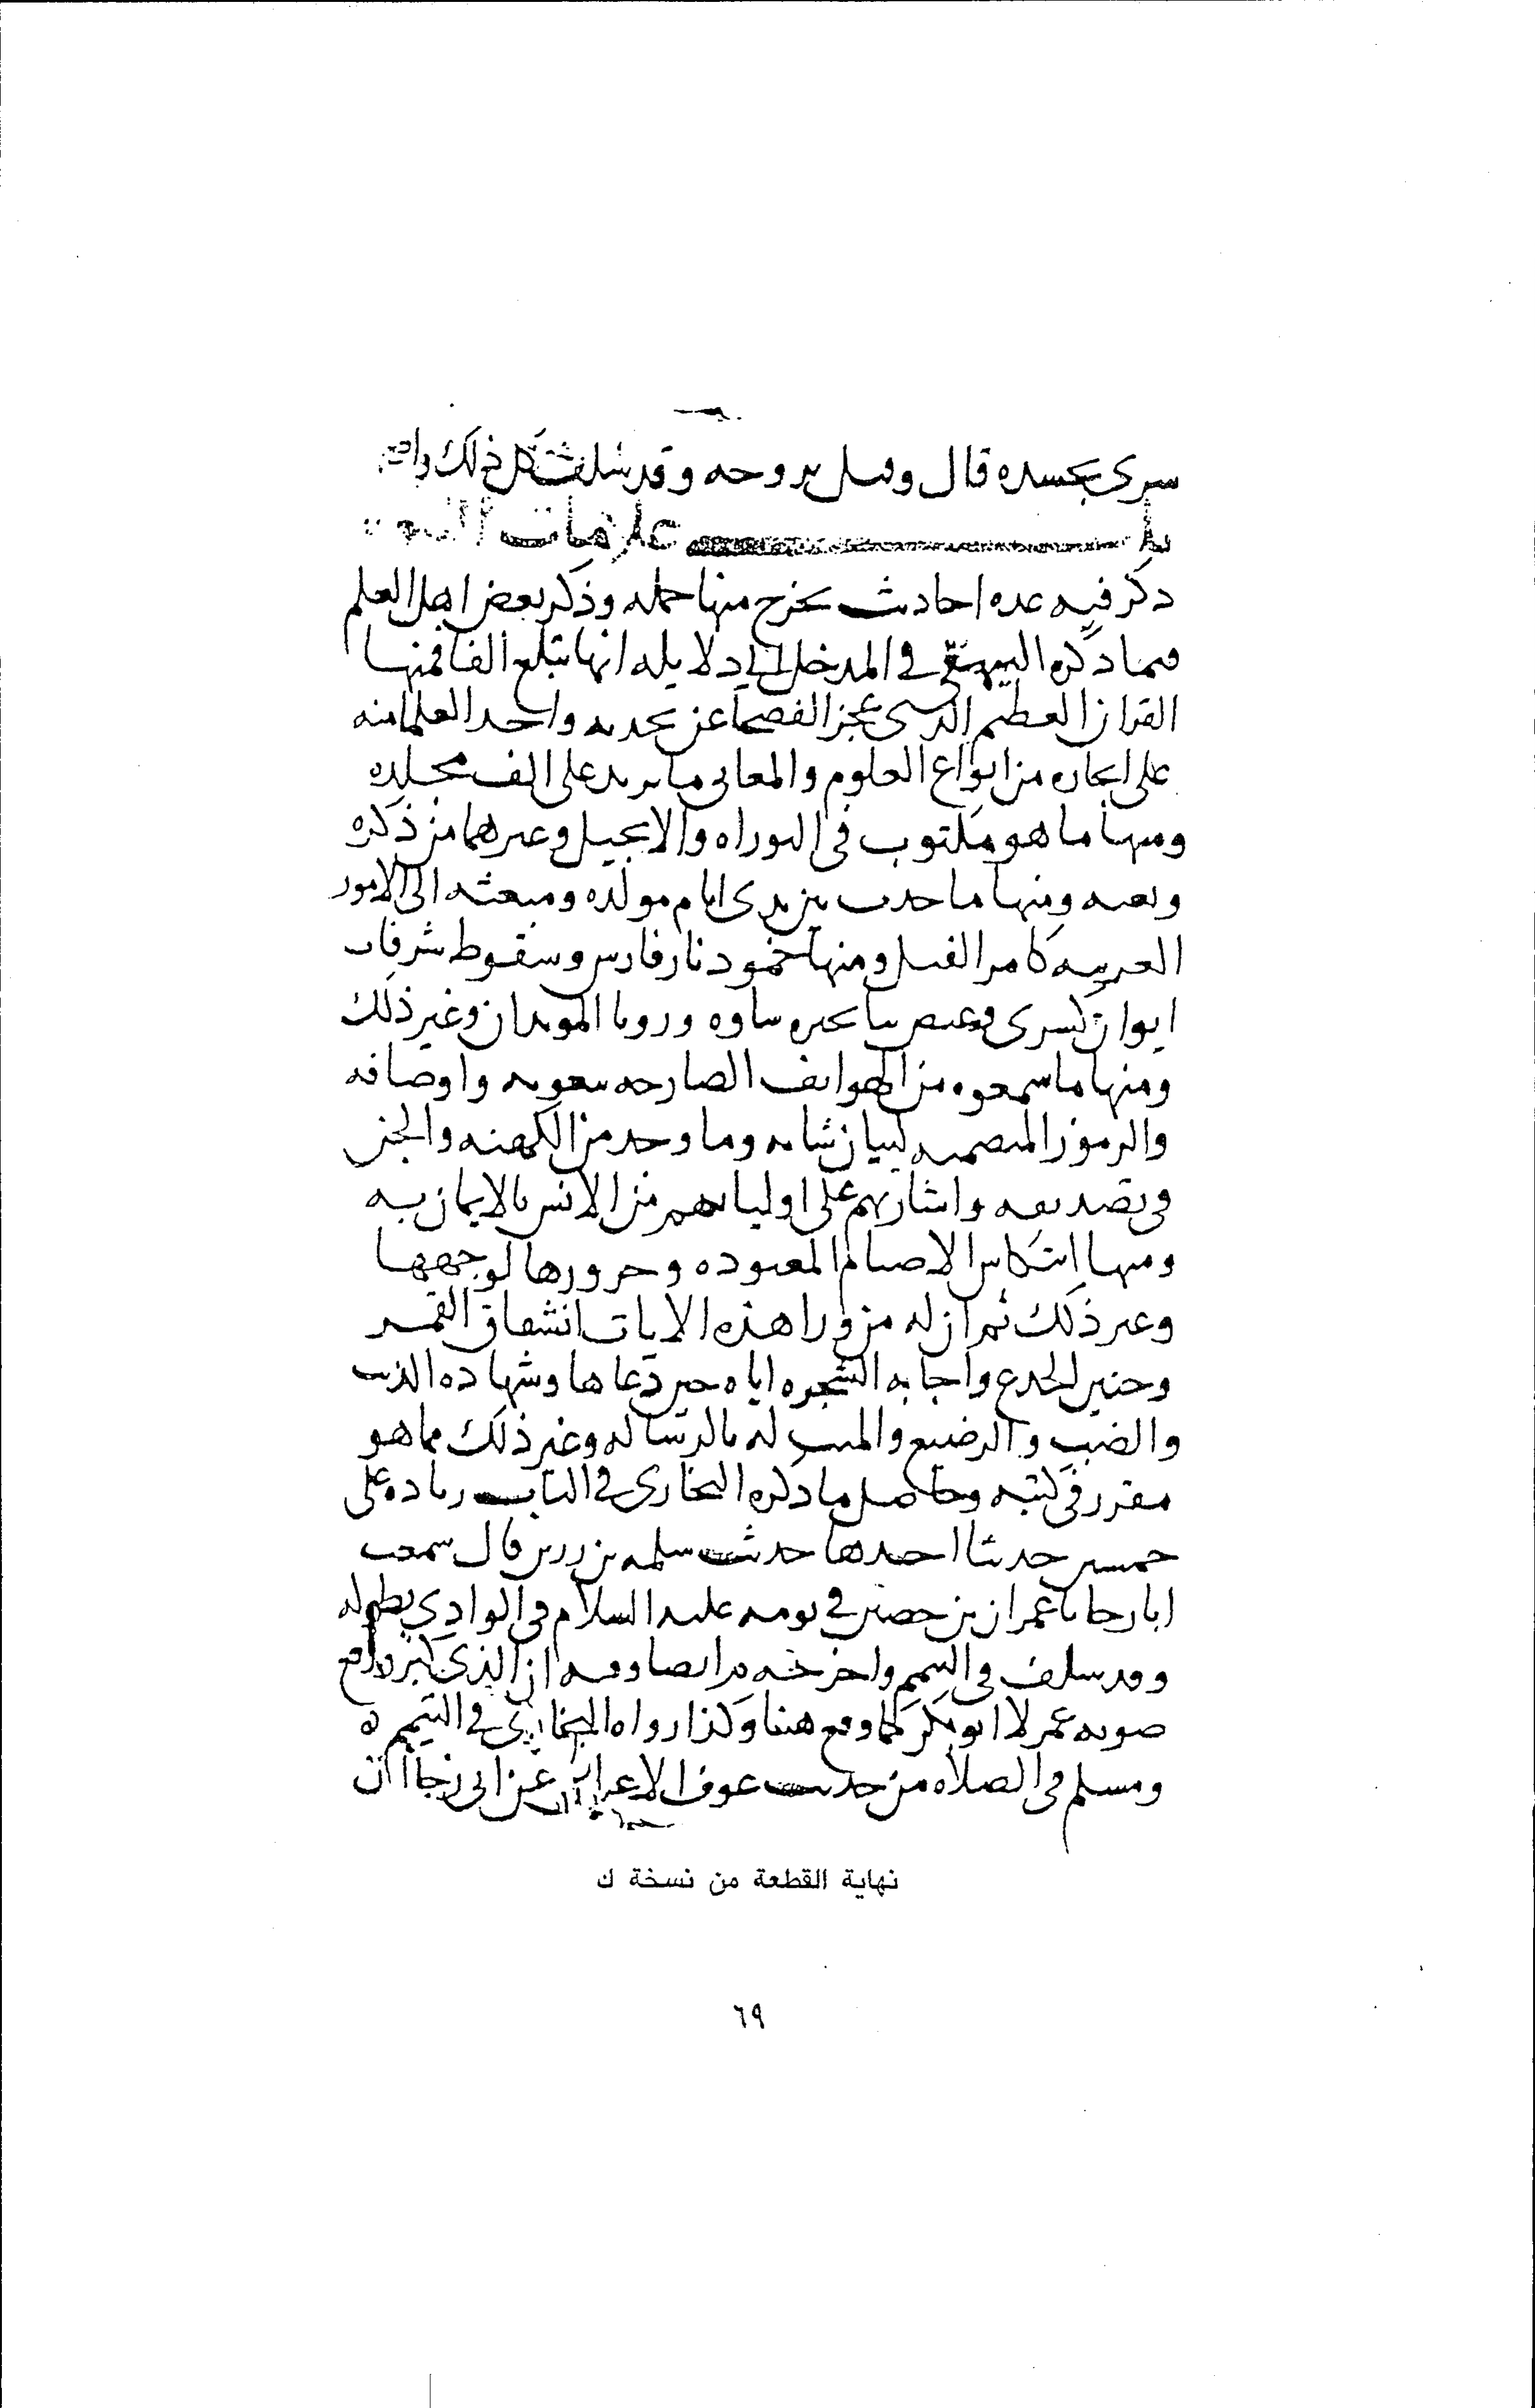 سرى بجسده قال وقيل بروحه وقد سلف كل ذلك
باب علامات النبوة
ذكر فيه عدة احاديث يخرج منها جمله وذكر بعض اهل العلم
فيما ذكره البيهقي في المدخل الى دلايله انها تبلغ الفا فمنها
القران العظيم الذي عجز الفصحا عن تحديه واحد العلما منه
على ايجازه من انواع العلوم والمعاني ما يزيد على الف مجلده
ومنها ما هو مكتوب في التوراه والانجيل وغيرهما من ذكره
ونعته ومنها ما حدث بين يدي ايام مولده ومبعثه الى الامور
الغريبه كامر الفيل ومنها خمود نار فارس وسقوط شرفات
ايوان كسرى وغيض ما بحيره ساوه ورويا الموبذان وغير ذلك
ومنها ما سمعوه من الهواتف الصارخه بنعوته واوصافه
والرموز المتضمنه لبيان شانه وما وجد من الكهنه والجن
في تصديقه واشارتهم على اوليائهم من الانس بالايمان به
ومنها انتكاس الاصنام المعبوده وخرورها لوجهها
وغير ذلك ثم ان له من ورا هذه الايات انشقاق القمر
وحنين الجذع واجابه الشجره اياه حين دعاها وشهاده الذيب
والضب والرضيع والميت له بالرساله وغير ذلك مما هو
مقرر في كتبه وحاصل ما ذكره البخاري في الباب زياده على
خمسين حديثا احدها حديث سلمه بن زرير قال سمعت
ابا رجا نا عمران بن حصين في نومه عليه السلام في الوادي بطوله
وقد سلف في التيمم واخرجه م ايضا وفيه ان الذي كبر ورفع
صوته عمر لا ابو بكر كما وقع هنا وكذا رواه البخاري في التيمم
ومسلم في الصلاه من حديث عوف الاعرابي عن ابي رجا ان
نهاية القطعة من نسخة ك
٦٩